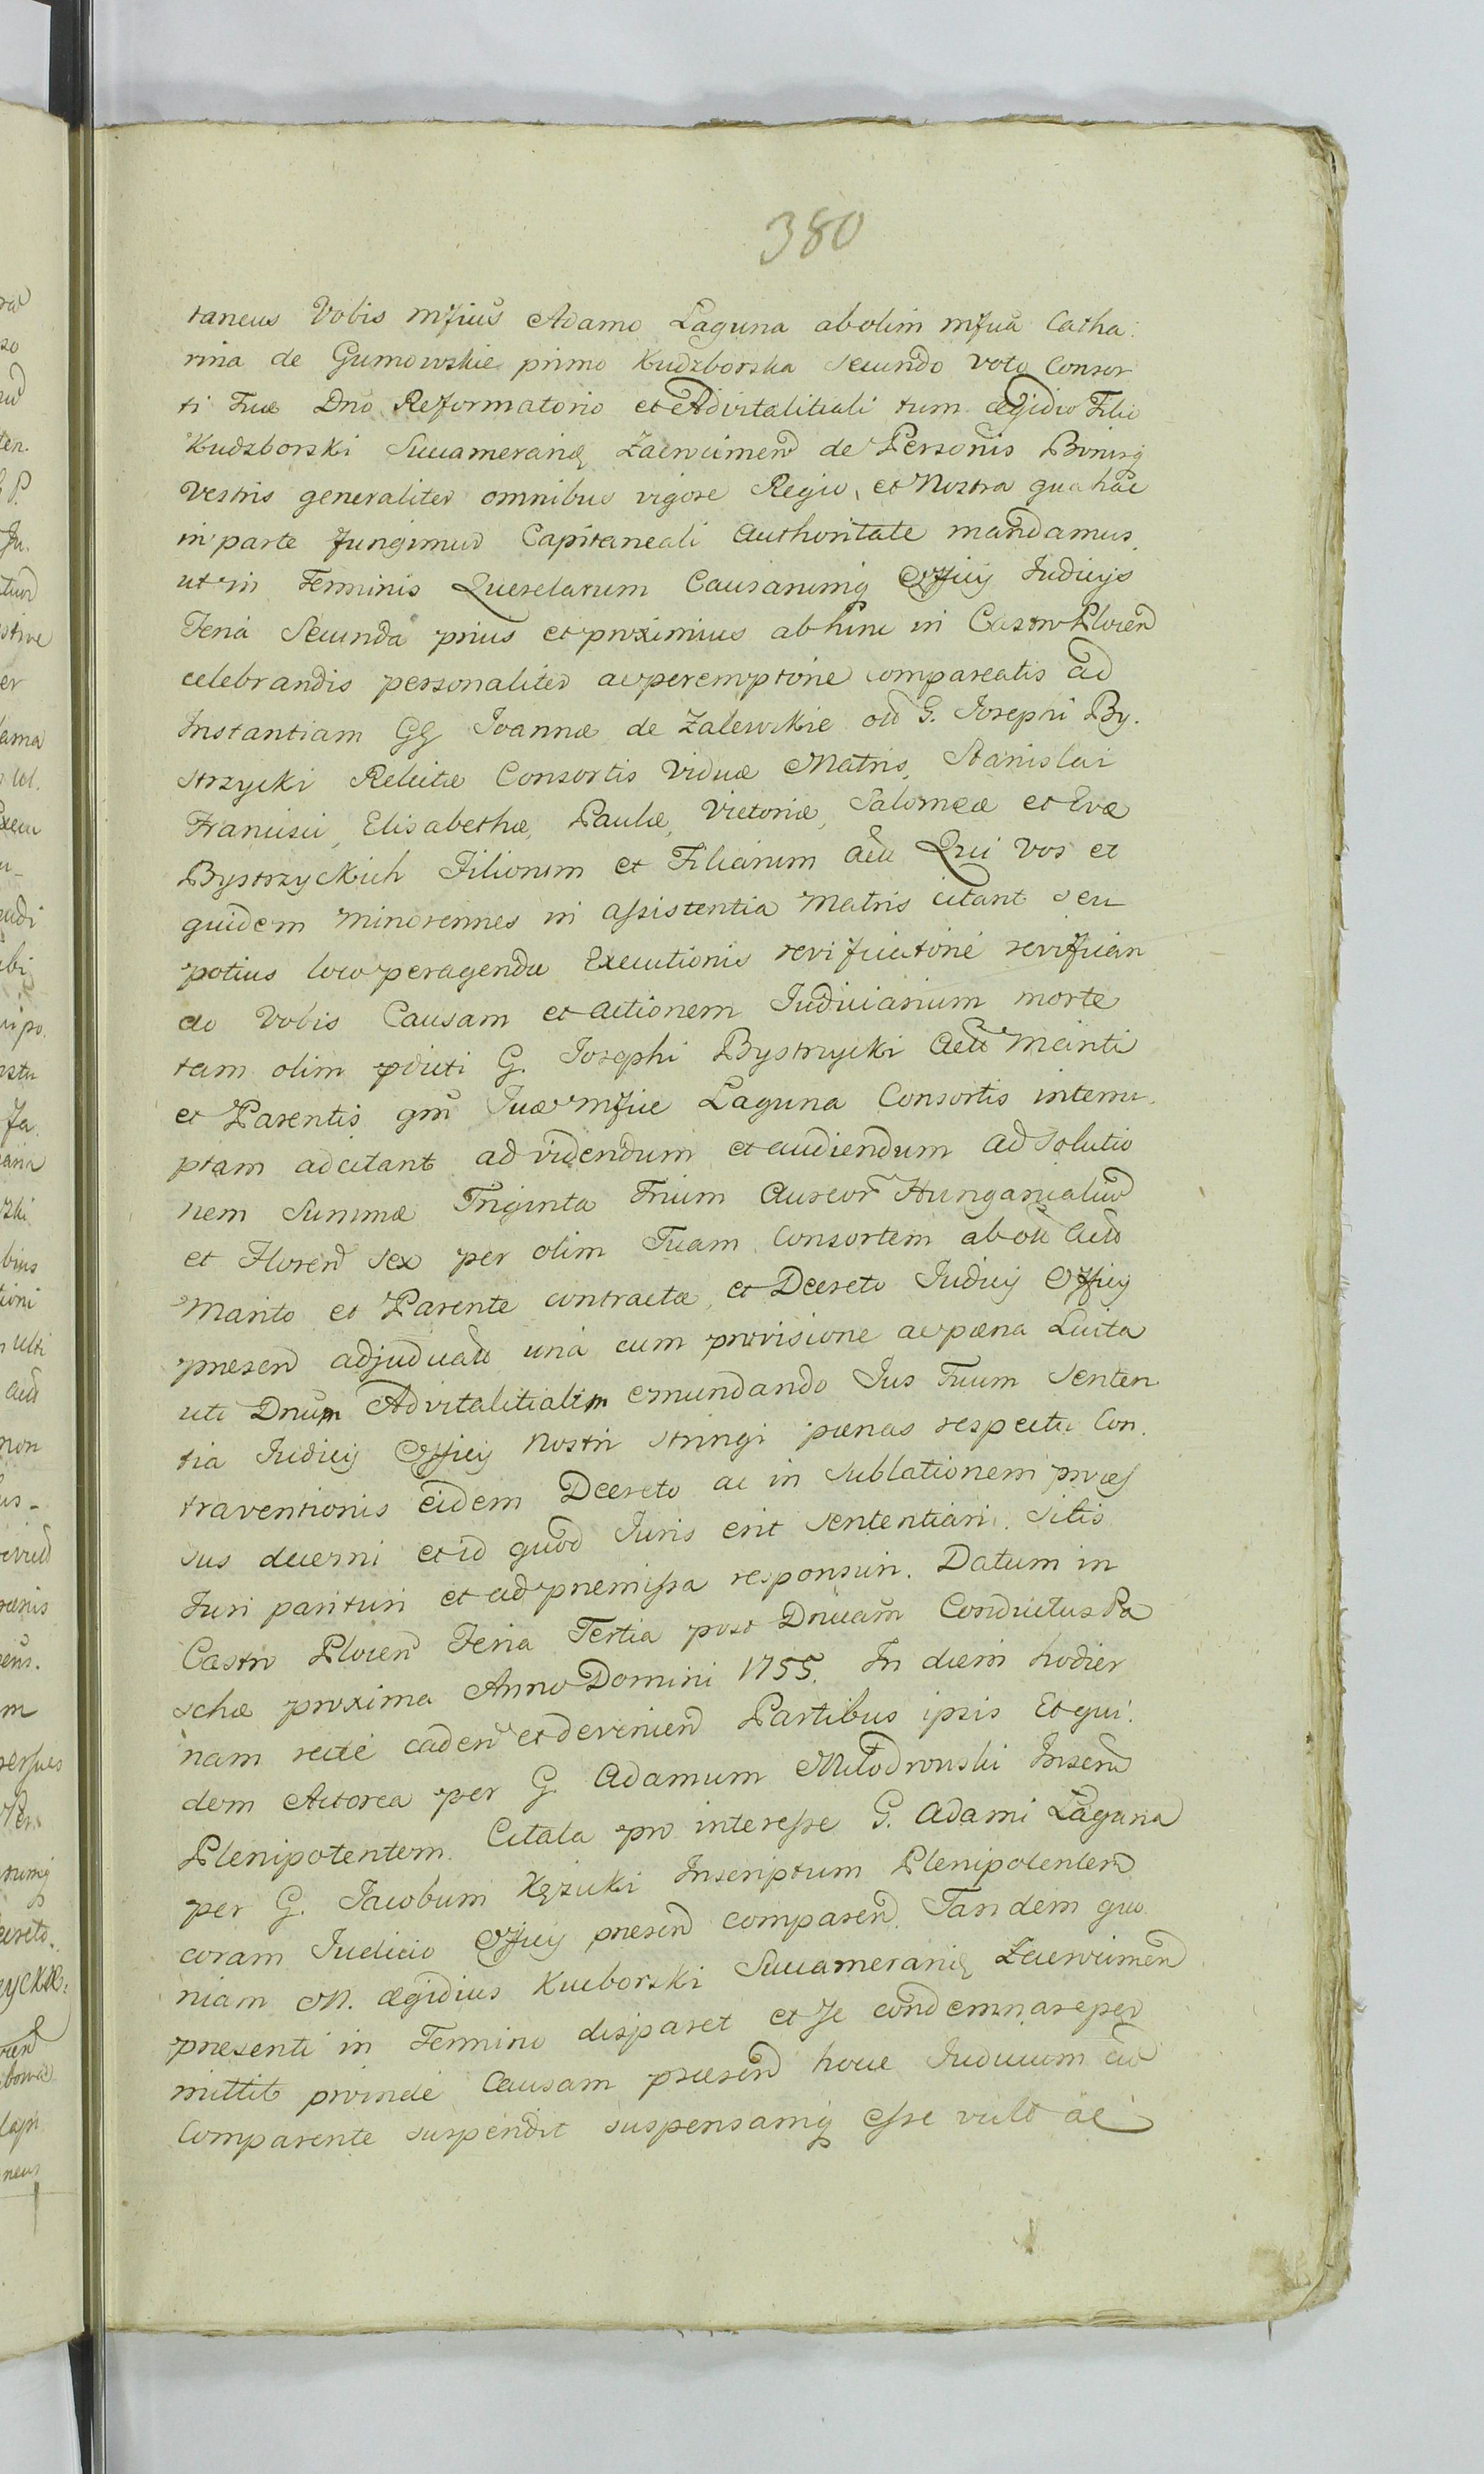 380
taneus Vobis Mfius Adamo Laguna ab olim Mfua Catha:
rina de Gumowskie primo Kudzborska secundo voto Consor
ti Tuæ Dno Reformatorio et Advitalitiali tum Ægidio Filio
Kudzborski Succamerario Zawcrimen de Personis Bonisq
Vestris generaliter omnibus vigore Regio, et Nostra qua hac
in parte fungimur Capitaneali Authoritate mandamus,
ut in Terminis Querelarum Causarumq Officij Judicijs
Feria Secunda prius et proximius abhinc in Castro Plocen
celebrandis personaliter ac peremptorie compareatis ad
Instantiam GG Joannæ de Zalewskie olim G. Josephi By-
strzycki Relictæ Consortis Viduæ Matris, Stanislai
Francisci, Elisabethæ, Paulæ, Victoriæ, Salomeæ et Evæ
Bystrzyckich Filiorum et Filiarum Act Qui Vos et
quidem minorennes in assistentia Matris citant seu
potius loco peragendæ Executionis revificatorie revifican
do Vobis Causam et Actionem Judiciarium morte
tam olim pdicti G. Josephi Bystrzycki Act Mariti
et Parentis qm Tuæ Mficæ Laguna Consortis interru-
ptam adcitant ad videndum et audiendum ad solutio
nem Summæ Triginta Trium Aureor Hungaricaliu
et Floren sex per olim Tuam Consortem ab oli Act
Marito et Parente contractæ, et Decreto Judicij Officij
presen adjudicat una cum provisione ac pæna Luita
uti Dnum Advitalitialem emundando Jus Tuum Senten
tia Judicij Officij Nostri stringi pænas respectu Con-
traventionis eidem Decreto ac in sublationem proces
sus decerni et id quod Juris erit sententiari. Sitis
Juri parituri et ad premissa responsuri. Datum in
Castro Plocen Feria Tertia post Dnicam Conductus Pa
schæ proxima Anno Domini 1755. In diem hodier
nam recte caden et devenien Partibus ipsis Et qui-
dem Actorea per G. Adamum Młodowski Inscru
Plenipotentem. Citata pro interesse G. Adami Laguna
per G. Jacobum Kęzicki Inscriptum Plenipotentem
coram Judicio Officij presen comparen. Tandem quo
niam M. Ægidius Kucborski Succamerario Zawcrimen
presenti in Termino disparet et se condemnare per
mittit proinde Causam presen hocce Judicium cu
Comparente suspendit suspensamq esse vult ac